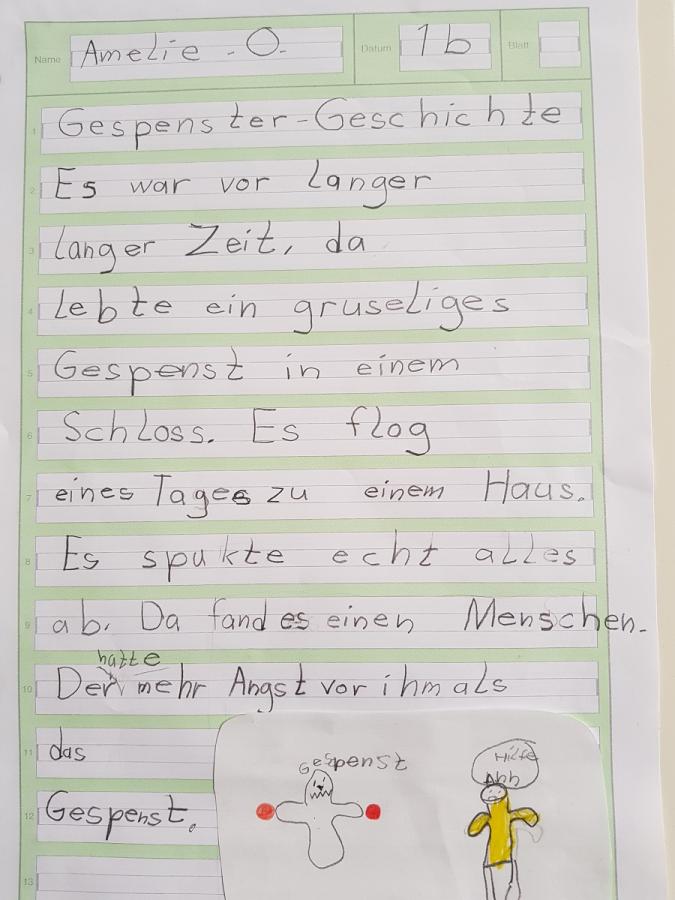 Name Amelie - O. Datum 1b Blatt
1 Gespenster-Geschichte
2 Es war vor langer
3 langer Zeit, da
4 lebte ein gruseliges
5 Gespenst in einem
6 Schloss. Es flog
7 eines Tages zu einem Haus.
8 Es spukte echt alles
9 ab. Da fand es einen Menschen.
hatte
10 Der mehr Angst vor ihm als
11 das
12 Gespenst.
13
Gespenst
Hilfe
Ahh